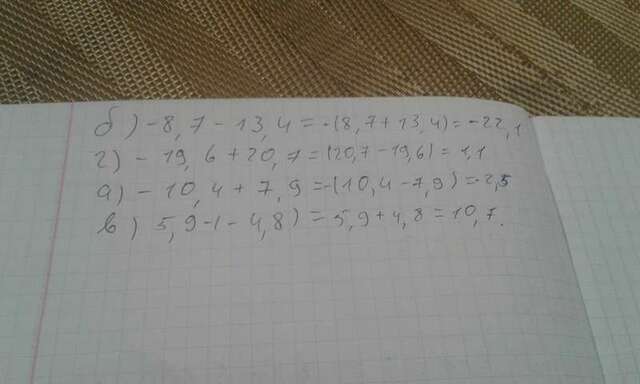 б) -8,7-13,4=-(8,7+13,4)=-22,1
г) -19,6+20,7=(20,7-19,6)=1,1
а) -10,4+7,9=-(10,4-7,9)=-2,5
в) 5,9-(-4,8)=5,9+4,8=10,7.